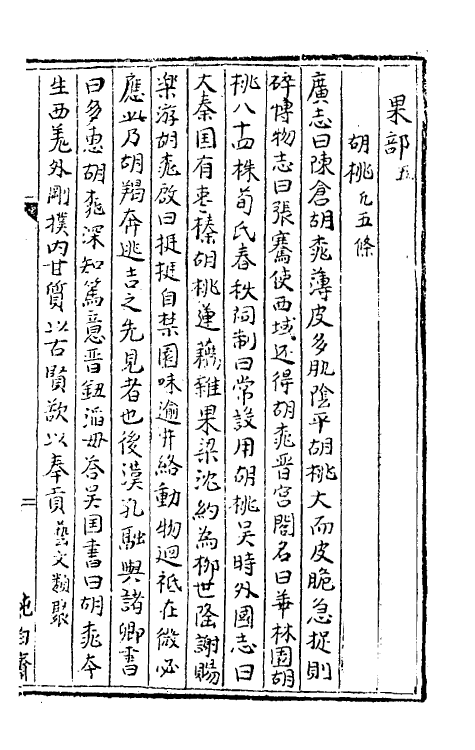 果部五
胡桃凡五條
廣志曰陳倉胡桃薄皮多肌陰平胡桃大而皮脆急捉則
碎博物志曰張騫使西域还得胡桃晉宮閣名曰華林園胡
桃八十四株荀氏春秋祠制曰常設用胡桃吴時外國志曰
大秦国有枣榛胡桃蓮藕雜果梁沈約為柳世隆謝賜
樂游胡桃啟曰挺挺自禁園味逾井絡動物迴祇在微必
應此乃胡羯奔逃吉之先見者也後漢孔融與諸卿書
曰多惠胡桃深知篤意晉鈕滔母荅吴国書曰胡桃本
生西羌外剛撲内甘質以古賢欲以奉貢藝文類聚
二